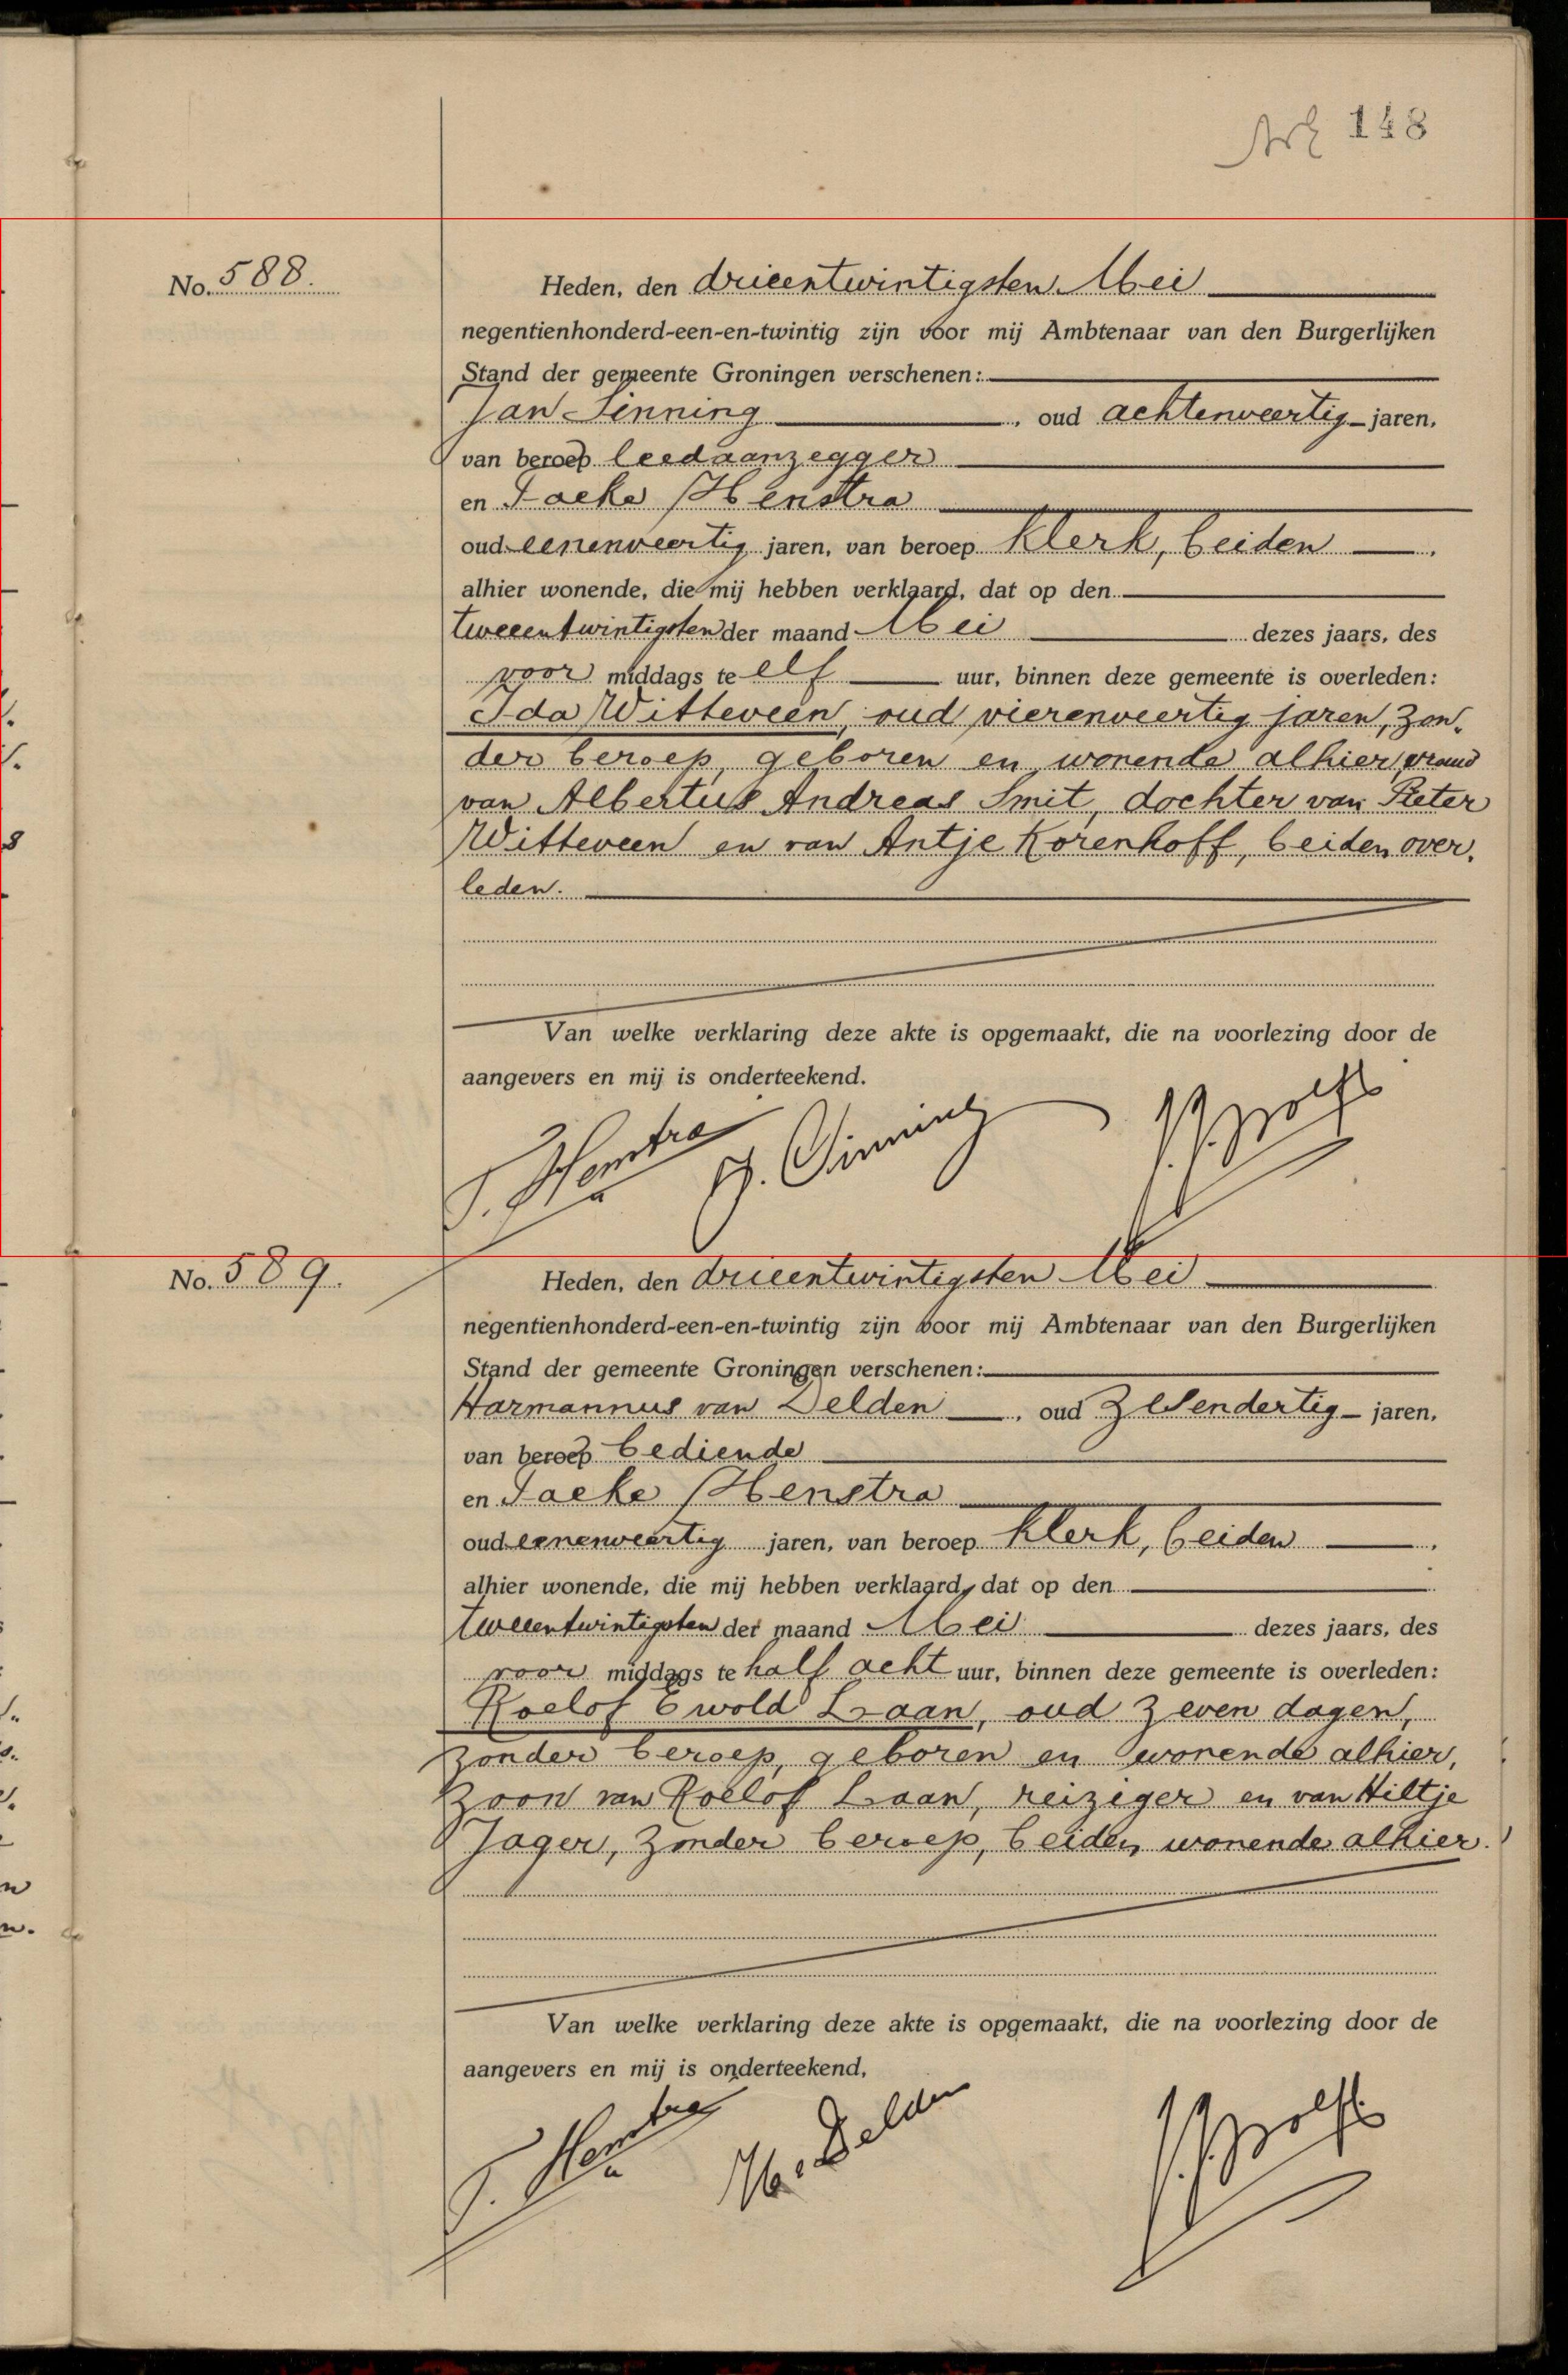 148
No. 588.
Heden, den drieentwintigsten Mei
negentienhonderd-een-en-twintig zijn voor mij Ambtenaar van den Burgerlijken
Stand der gemeente Groningen verschenen:
Jan Sinning, oud achtenveertig jaren,
van beroep leedaanzegger
en Tacke Henstra
oud eenenveertig jaren, van beroep klerk, beiden.
alhier wonende, die mij hebben verklaard, dat op den
tweeentwintigsten der maand Mei dezes jaars, des
voor middags te elf uur, binnen deze gemeente is overleden:
Ida Witteveen, oud vierenveertig jaren, zon-
der beroep, geboren en wonende alhier, vrouw
van Albertus Andreas Smit, dochter van Pieter
Witteveen en van Antje Korenhoff, beiden over-
leden.
Van welke verklaring deze akte is opgemaakt, die na voorlezing door de
aangevers en mij is onderteekend.
T. Henstra J. Sinning
No. 589.
Heden, den drieentwintigsten Mei
negentienhonderd-een-en-twintig zijn voor mij Ambtenaar van den Burgerlijken
Stand der gemeente Groningen verschenen:
Harmannus van Delden, oud zesendertig jaren,
van beroep bediende
en Tacke Henstra
oud eenenveertig jaren, van beroep klerk, beiden.
alhier wonende, die mij hebben verklaard, dat op den
tweeentwintigsten der maand Mei dezes jaars, des
voor middags te half acht uur, binnen deze gemeente is overleden:
Roelof Ewold Laan, oud zeven dagen,
zonder beroep, geboren en wonende alhier,
zoon van Roelof Laan, reiziger en van Hiltje
Jager, zonder beroep, beiden wonende alhier.
Van welke verklaring deze akte is opgemaakt, die na voorlezing door de
aangevers en mij is onderteekend,
T. Henstra H. v. Delden